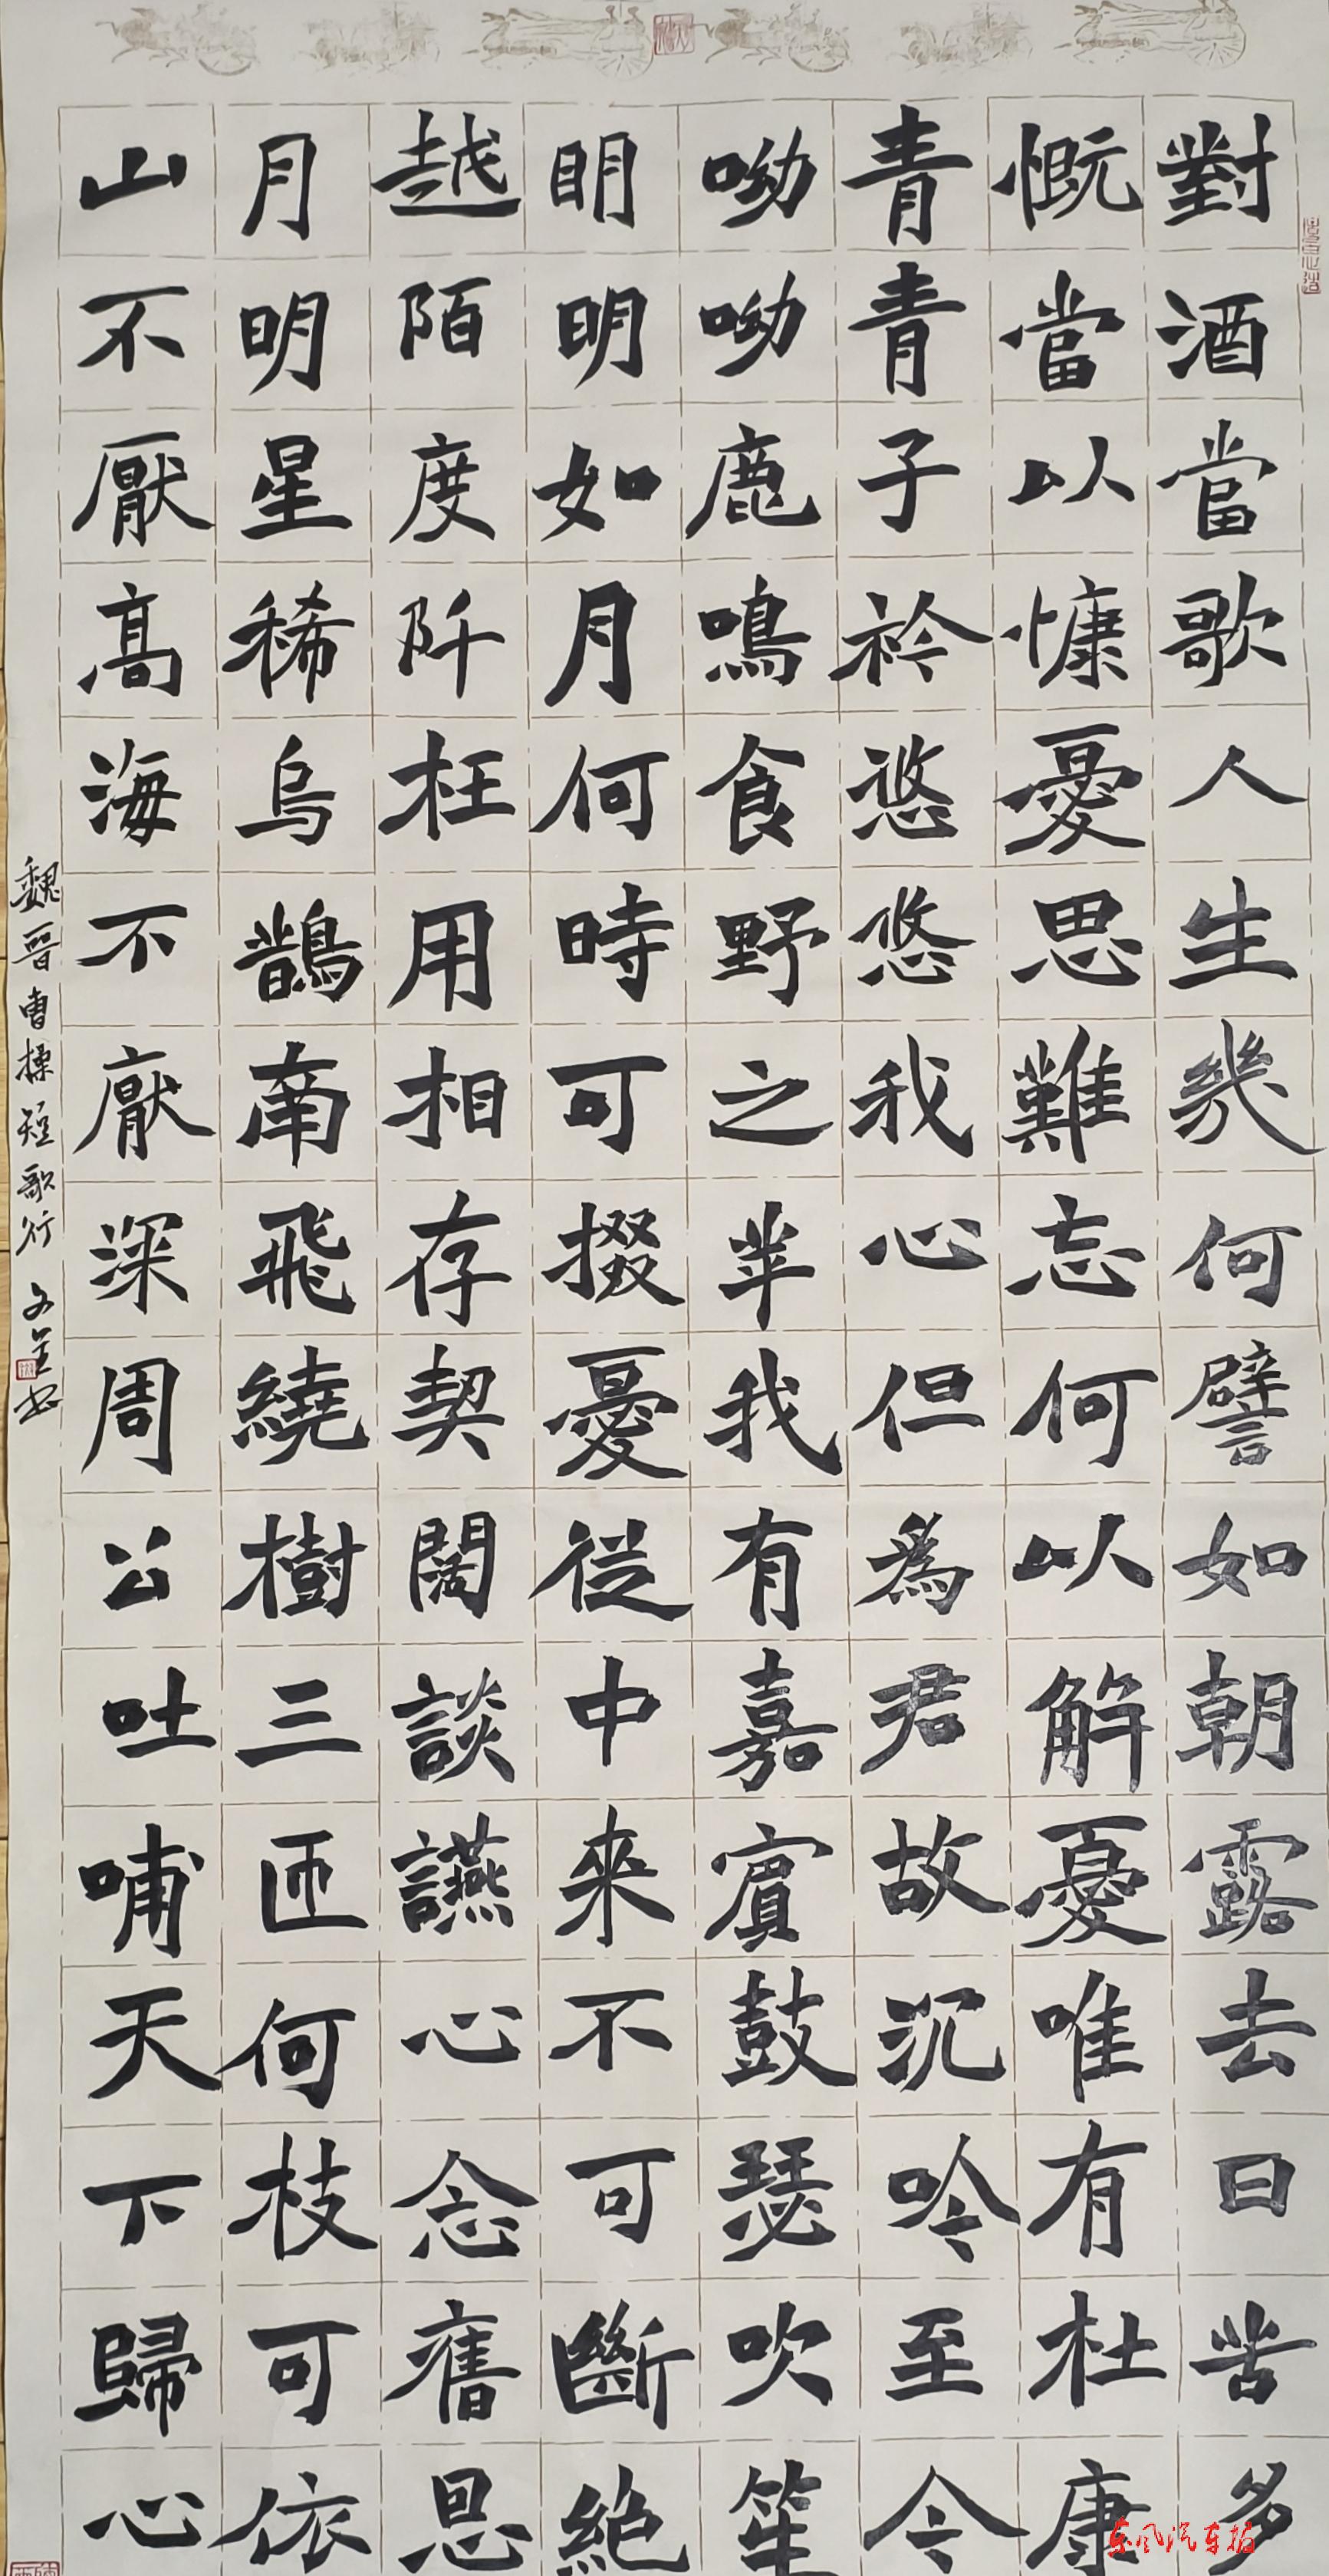 對酒當歌人生幾何譬如朝露去日苦多
慨當以慷憂思難忘何以解憂唯有杜康
青青子衿悠悠我心但為君故沉吟至今
呦呦鹿鳴食野之苹我有嘉賓鼓瑟吹笙
明明如月何時可掇憂從中來不可斷絕
越陌度阡枉用相存契闊談讌心念舊恩
月明星稀烏鵲南飛繞樹三匝何枝可依
山不厭高海不厭深周公吐哺天下歸心
魏晋曹操短歌行 文生书
东风汽车拍